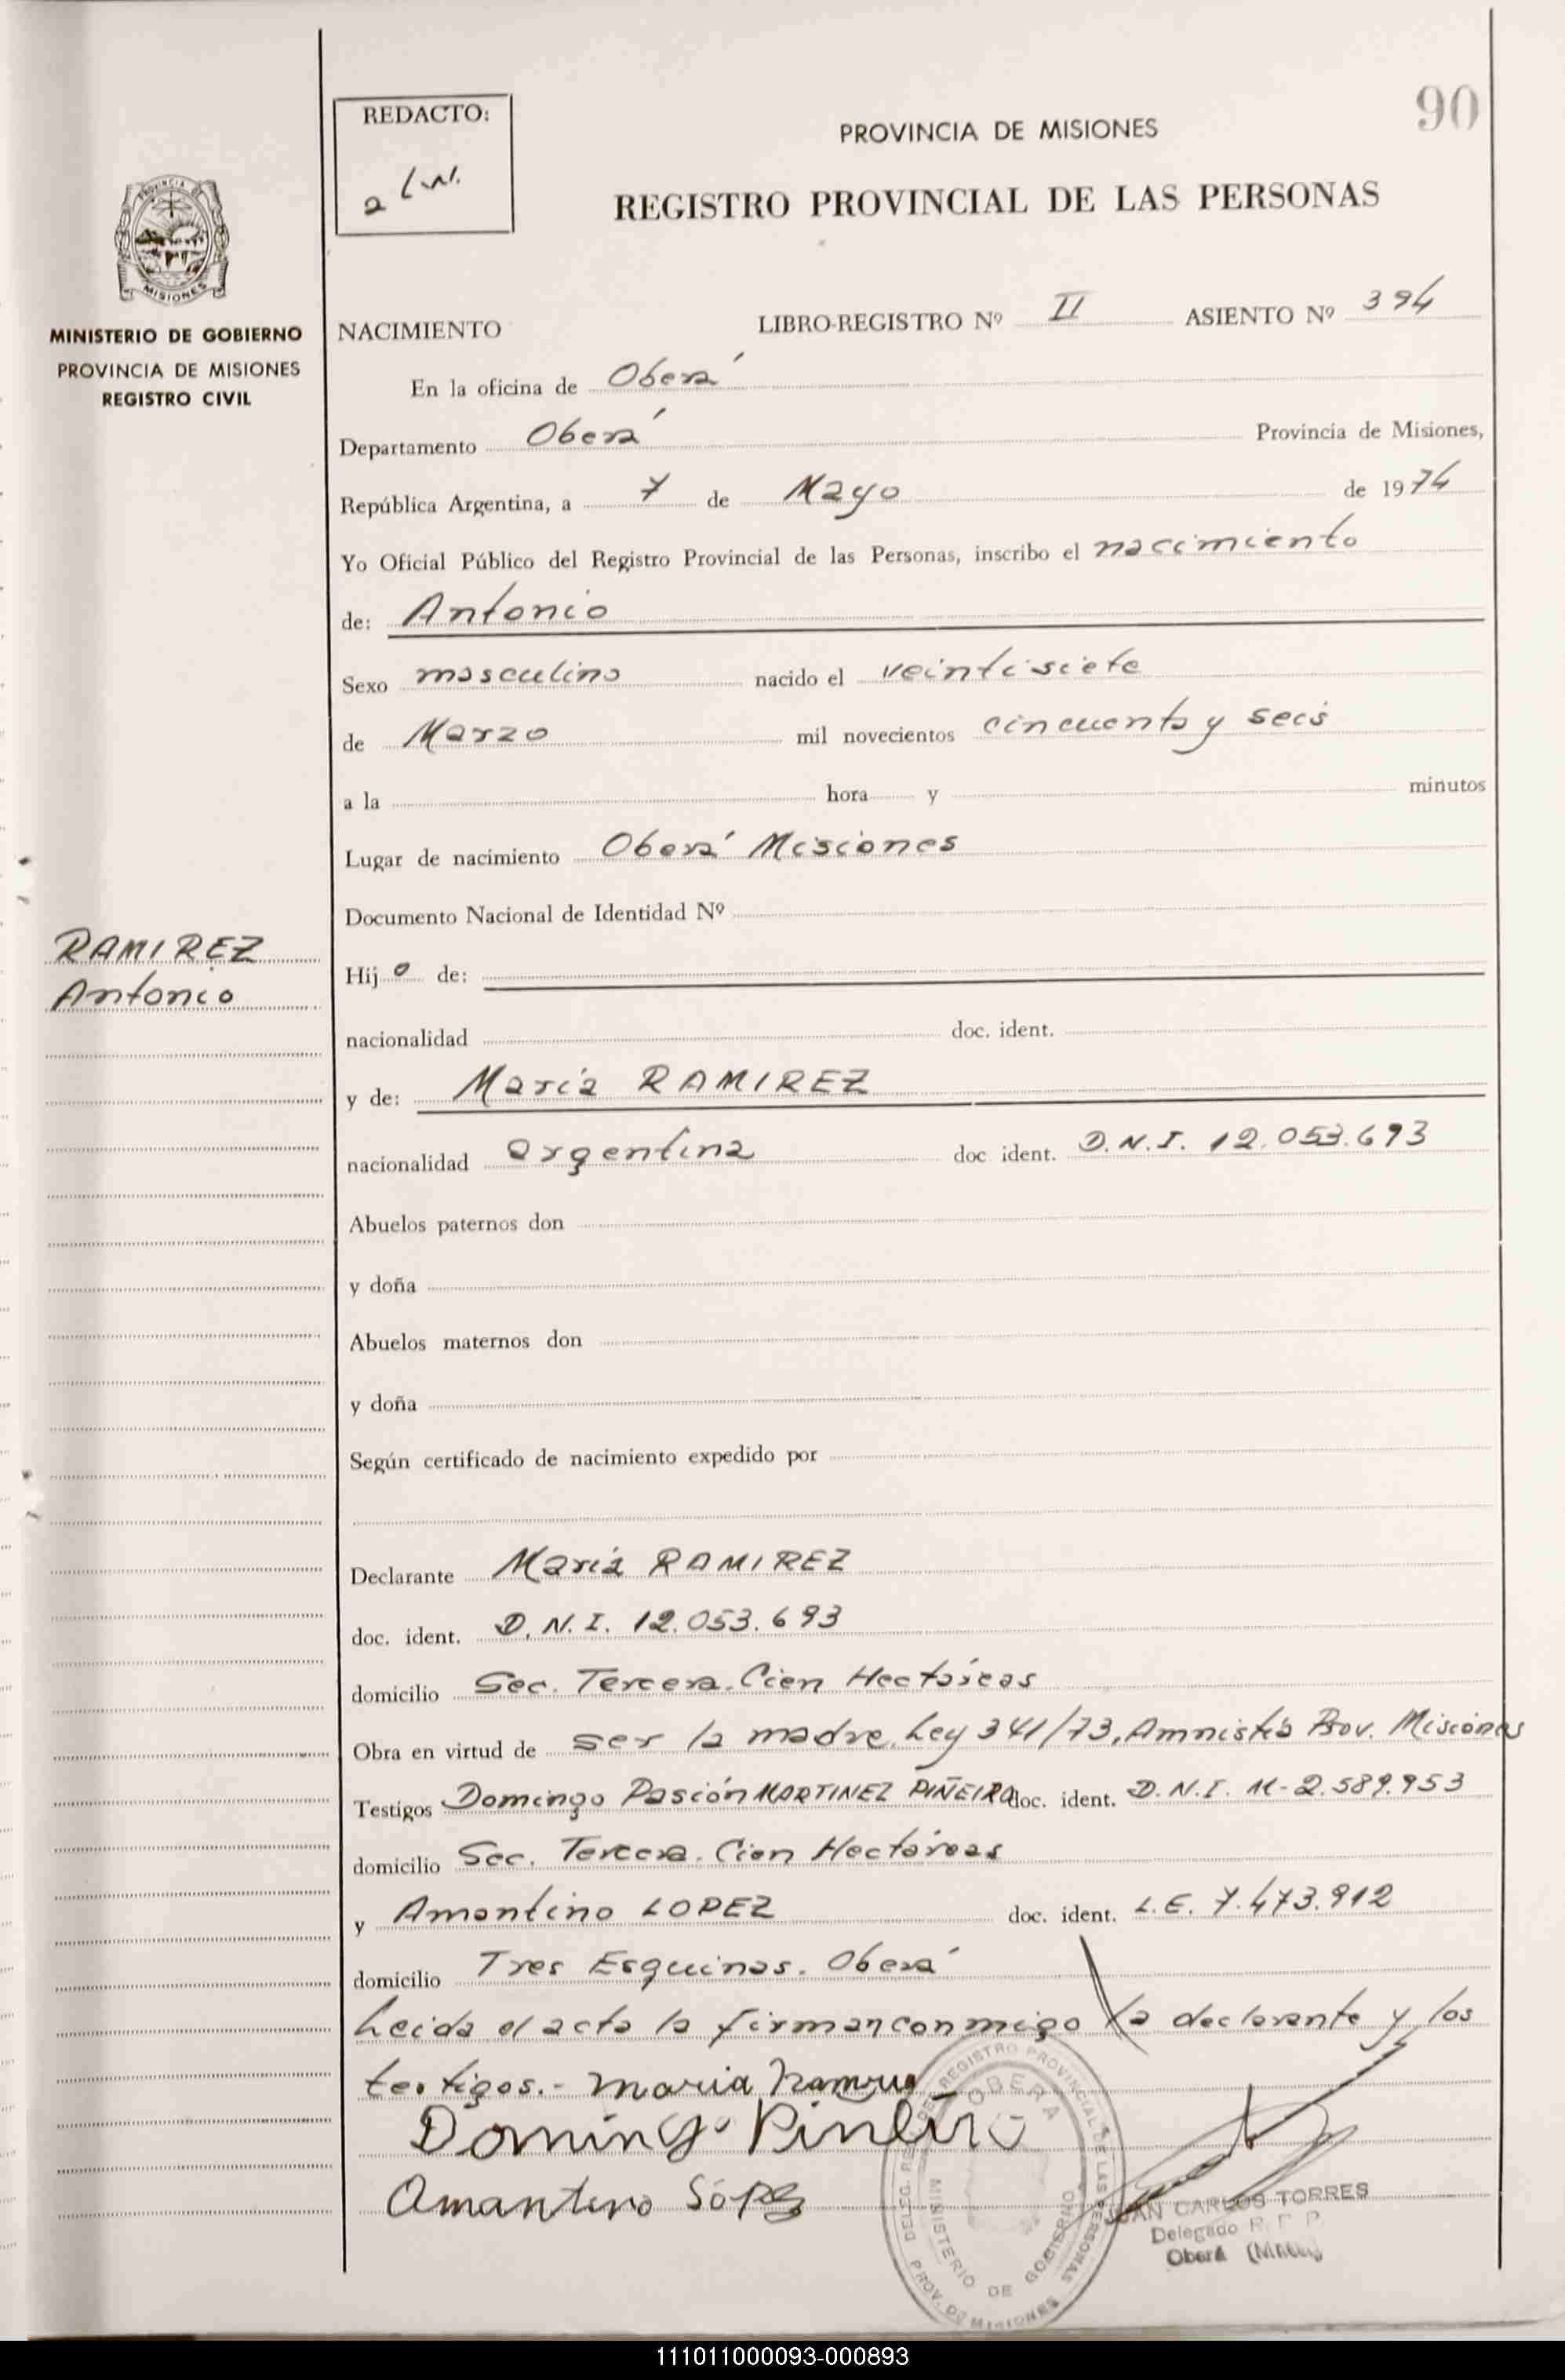 90
REDACTO:
PROVINCIA DE MISIONES
REGISTRO PROVINCIAL DE LAS PERSONAS
PROVINCIA DE
MISIONES
MINISTERIO DE GOBIERNO
PROVINCIA DE MISIONES
REGISTRO CIVIL
NACIMIENTO LIBRO-REGISTRO Nº II ASIENTO Nº 394
En la oficina de Oberá
Departamento Oberá Provincia de Misiones,
República Argentina, a 7 de Mayo de 1974
Yo Oficial Público del Registro Provincial de las Personas, inscribo el nacimiento
de: Antonio
Sexo masculino nacido el veintisiete
de Marzo mil novecientos cincuenta y seis
a la hora y minutos
Lugar de nacimiento Oberá Misiones
Documento Nacional de Identidad Nº
RAMIREZ
Antonio
Hijo de:
nacionalidad doc. ident.
y de: María RAMIREZ
nacionalidad argentina doc ident. D.N.I. 12.053.693
Abuelos paternos don
y doña
Abuelos maternos don
y doña
Según certificado de nacimiento expedido por
Declarante María RAMIREZ
doc. ident. D.N.I. 12.053.693
domicilio Sec. Tercera. Cien Hectáreas
Obra en virtud de ser la madre. Ley 341/73, Amnistía Prov. Misiones
Testigos Domingo Pasión MARTINEZ PIÑEIRO doc. ident. D.N.I. M-2.589.953
domicilio Sec. Tercera. Cien Hectáreas
y Amantino LOPEZ doc. ident. L.E. 7.473.912
domicilio Tres Esquinas. Oberá
Leida el acta la firman conmigo la declarante y los
testigos.- Maria Ramires
Domingo Piñeiro
Amantino Lopez
DELEG. REG. DEL REGISTRO PROVINCIAL DE LAS PERSONAS
OBERA
MINISTERIO DE GOBIERNO
PROV. DE MISIONES
JUAN CARLOS TORRES
Delegado R. P. P.
Oberá (Mnes)
111011000093-000893